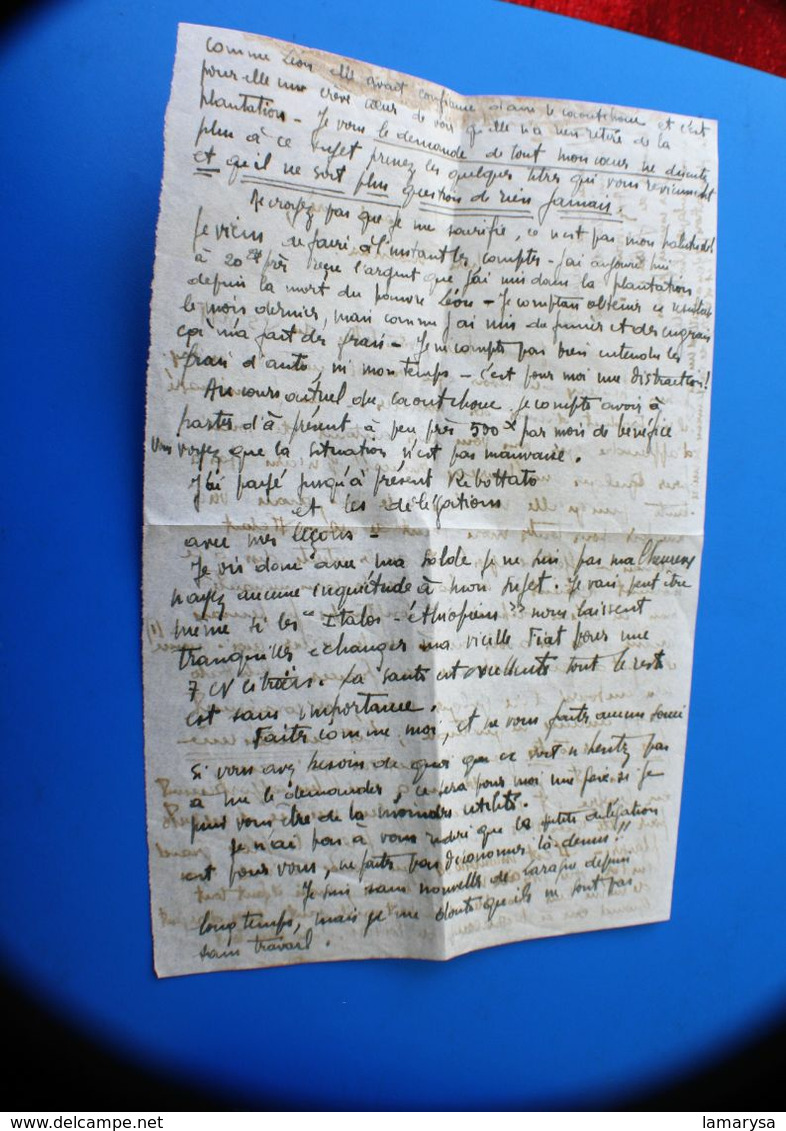 comme Léon elle avait confiance dans le caoutchouc et c'est
pour elle une crève cœur de voir qu'elle n'a rien retiré de la
plantation - Je vous le demande de tout mon cœur ne discutez
plus à ce sujet prenez les quelques titres qui vous reviennent
et qu'il ne soit plus question de rien jamais.
Ne croyez pas que je me sacrifie, ce n'est pas mon habitude!
Je viens de faire à l'instant les comptes - j'ai aujourd'hui
à 20 près reçu l'argent que j'ai mis dans la plantation
depuis la mort du pauvre Léon - Je comptais obtenir ce resultat
le mois dernier, mais comme j'ai mis du fumier et des engrais
ça m'a fait des frais - Je ne compte pas bien entendu les
frais d'auto, ni mon temps - c'est pour moi une distraction!
Au cours actuel du caoutchouc je compte avoir à
partir d'à présent à peu près 500 par mois de bénéfice
Vous voyez que la situation n'est pas mauvaise.
J'ai payé jusqu'à présent Ribottato
et les délégations
avec mes leçons -
Je vis donc avec ma solde je ne suis pas malheureux
n'ayez aucune inquiétude à mon sujet. Je vais peut être
même si les "Italos - éthiopiens" nous laissent
tranquilles echanger ma vieille Fiat pour une
7 CV Citroën. La santé est excellente tout le reste
est sans importance.
Faites comme moi et ne vous faites aucun souci
si vous avez besoin de quoi que ce soit n'hesitez pas
à me le demander, ce sera pour moi une joie si je
puis vous être de la moindre utilité.
Je n'ai pas à vous redire que la petite délégation
est pour vous, ne faites pas d'économies là-dessus!!
Je suis sans nouvelles de depuis
longtemps, mais je me doute qu'ils ne sont pas
sans travail.
lamarysa